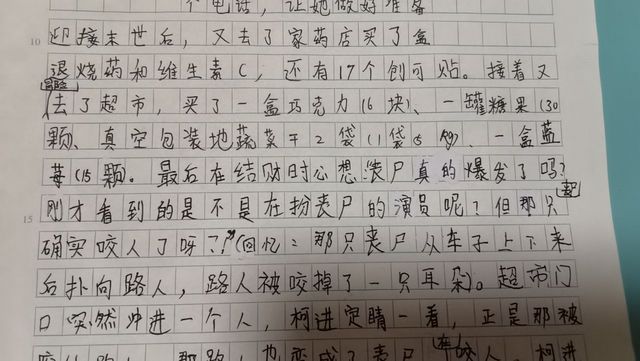 个电话，让她做好准备
10 迎接末世后，又去了家药店买了盒
退烧药和维生素C，还有17个创可贴。接着又
去了超市，买了一盒巧克力(6块)、一罐糖果(30
颗、真空包装地蔬菜干2袋(1袋6)、一盒蓝
莓(15颗。最后在结财时心想:"丧尸真的爆发了吗?
15 刚才看到的是不是在扮丧尸的演员呢?但那只
确实咬人了呀??"(回忆:那只丧尸从车子上下来
后扑向路人，路人被咬掉了一只耳朵)。超市门
口突然冲进一个人，柯进定睛一看，正是那被